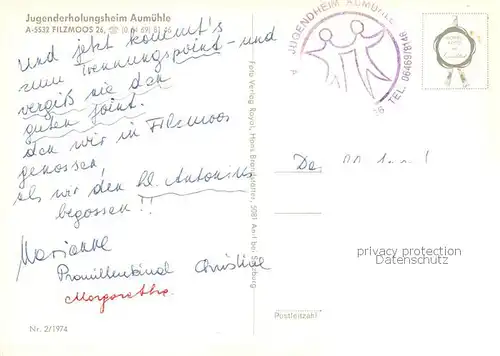 Jugenderholungsheim Aumühle
A-5532 FILZMOOS 26, ☎ (0 64 69) 81 46
und jetzt kommt's
zum Trennungspoint - und
vergiß nie den
guten Joint.
den wir in Filzmoos
genossen,
als wir den hl. Antonius
begossen!!
Marianne
Promillenkönal Christine
Margarethe.
Nr. 2/1974
Foto Verlag Royal, Hans Brandstätter, 5081 Anif bei Salzburg
A JUGENDHEIM AUMÜHLE
26 TEL. 06469/8146
privacy protection
Datenschutz
Postleitzahl